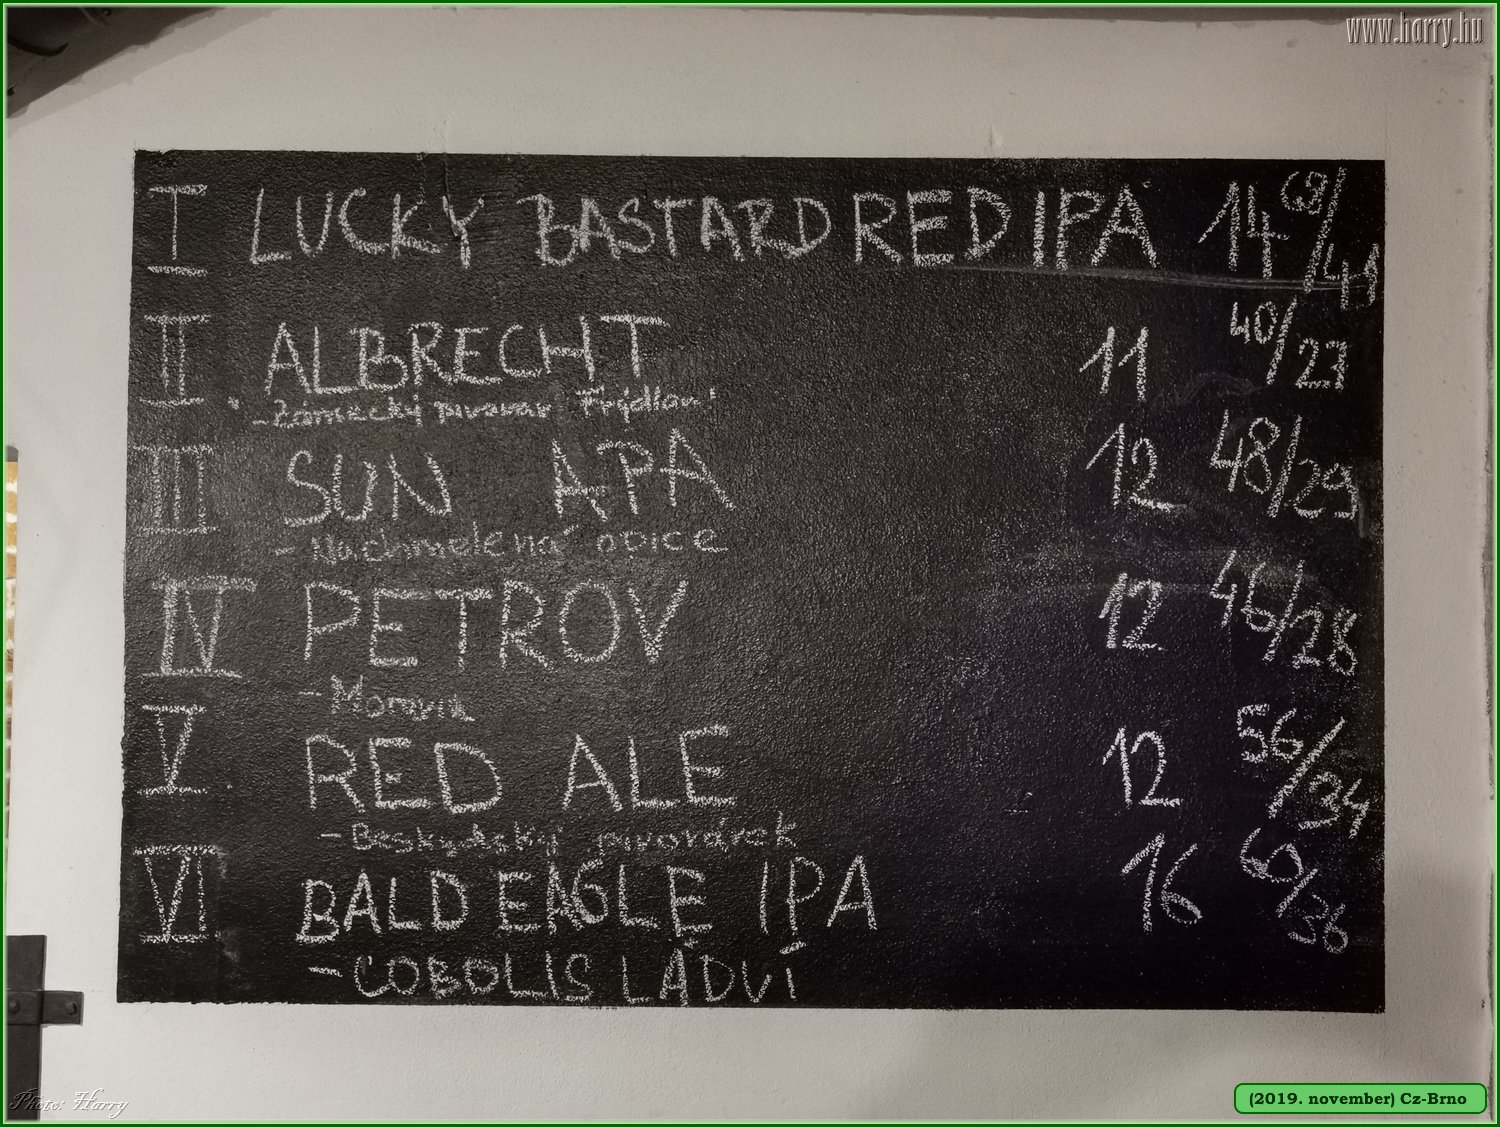 www.harry.hu
I LUCKY BASTARD RED IPA 14 /41
II ALBRECHT 11 40/23
- Zámecký pivovar Frýdlant
III SUN APA 12 48/29
- Nachmelená opice
IV PETROV 12 46/28
- Moravia
V RED ALE 12 56/34
- Beskydský pivovárek
VI BALD EAGLE IPA 16 60/36
- COBOLIS LÁDVÍ
Photo: Harry
(2019. november) Cz-Brno